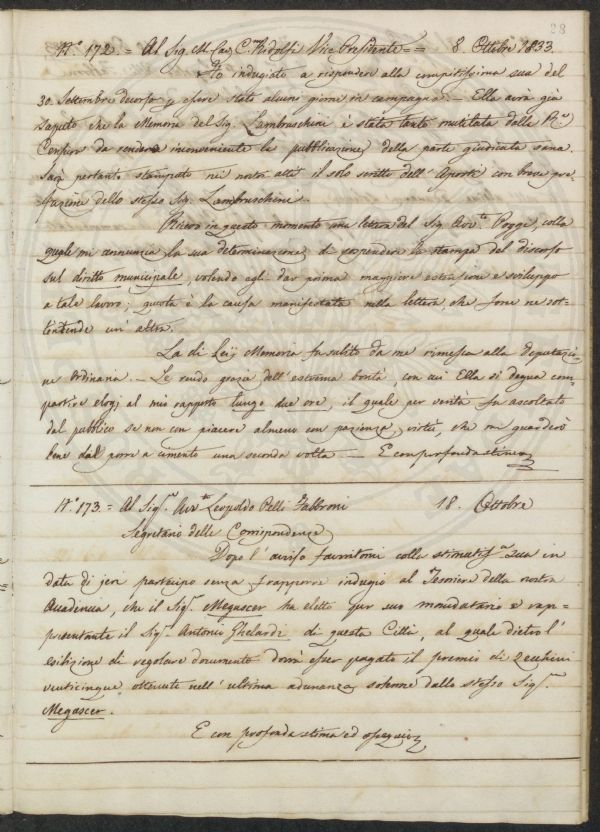 28
N.° 172 = Al Sig. M. Cav. C. Ridolfi Vice Presidente == 8. Ottobre 1833.
Ho indugiato a rispondere alla compitissima sua del
30. Settembre decorso p. essere stato alcuni giorni in campagna. — Ella avrà già
saputo che la Memoria del Sig. Lambruschini è stata tanto mutilata dalla R.
Censura da rendere inconveniente la pubblicazione della parte giudicata sana.
Sarà pertanto stampato nei nostri atti il solo scritto dell'Aporti con breve pre-
fazione dello stesso Sig. Lambruschini.
Ricevo in questo momento una lettera del Sig. Avv.to Poggi, colla
quale mi annunzia la sua determinazione di sospendere la stampa del discorso
sul diritto municipale, volendo egli dar prima maggiore estensione e sviluppo
a tale lavoro; questa è la causa manifestata nella lettera, che forse ne sot-
tintende un'altra.
La di Lei Memoria fu subito da me rimessa alla deputazio-
ne Ordinaria. — Le rendo grazie dell'estrema bontà, con cui Ella si degna com-
partire elogj al mio rapporto lungo due ore, il quale per verità fu ascoltato
dal pubblico se non con piacere almeno con pazienza, virtù, che mi guarderò
bene dal porre a cimento una seconda volta — E con profonda stima
N.° 173. = Al Sig.r Avv.to Leopoldo Pelli Fabbroni 18. Ottobre
Segretario delle Corrispondenze
Dopo l'avviso favoritomi colla stimatiss.a Sua in
data di jeri partecipo senza frapporre indugio al Tesoriere della nostra
Accademia, che il Sig.r Megascer ha eletto per suo mandatario e rap=
presentante il Sig.r Antonio Ghelardi di questa Città, al quale dietro l'
esibizione di regolare documento dovrà esser pagato il premio di Zecchini
venticinque, ottenuto nell'ultima adunanza solenne dallo stesso Sig.r
Megascer.
E con profonda stima ed ossequio